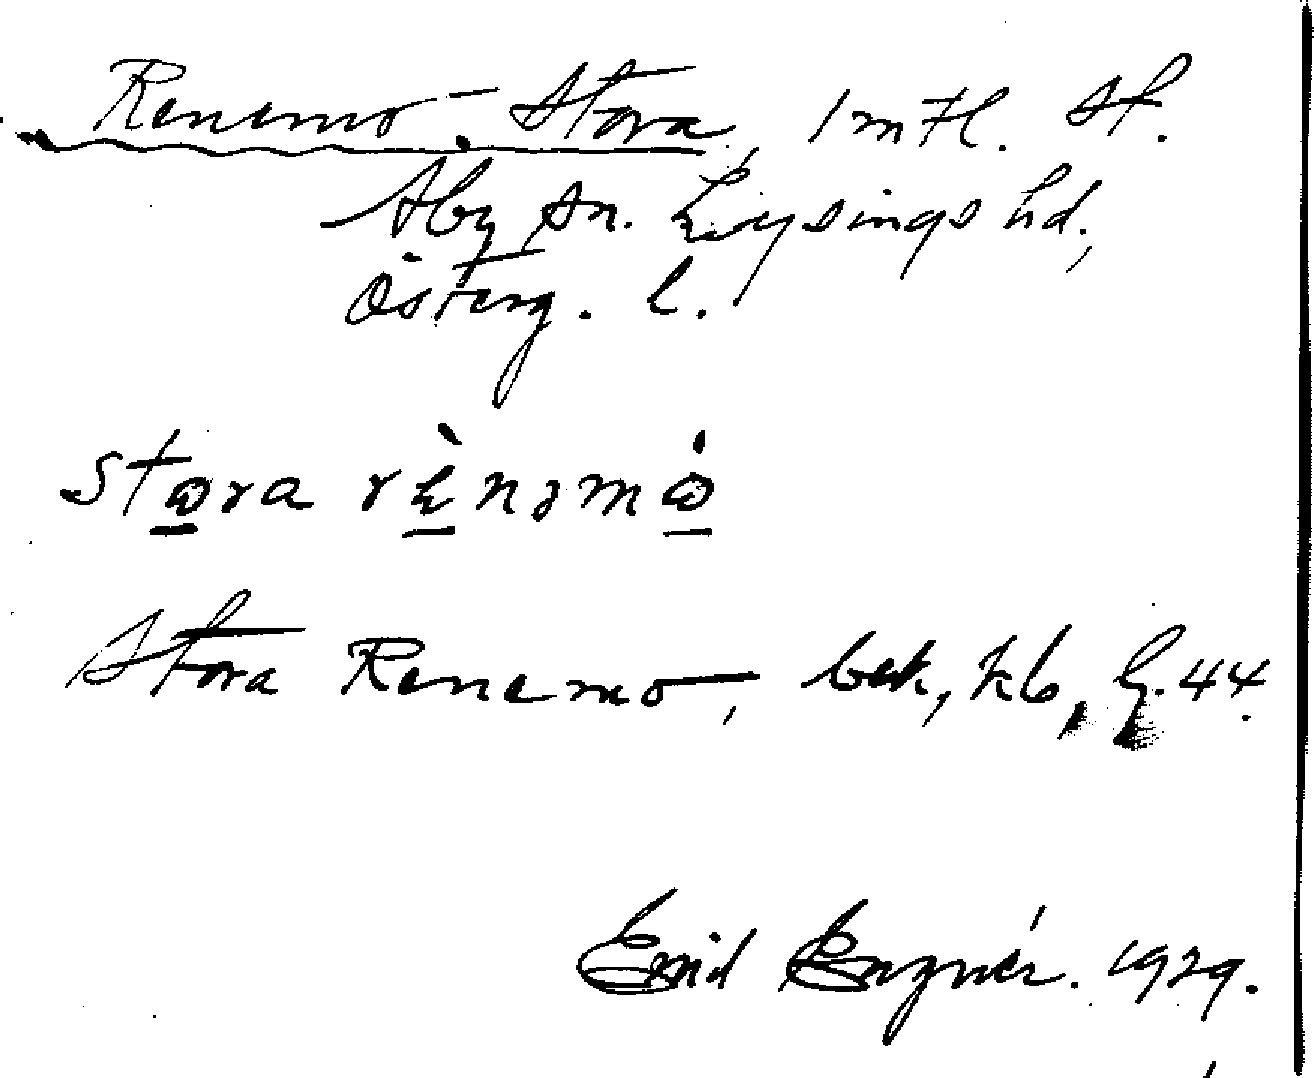 Renemo - Stora, 1 mtl. st.
Åby sn. Lysings hd.,
Österg. l.
Stora rènəmó
Stora Renemo, bek, kb, G. 44.
Enid Engnér. 1929.